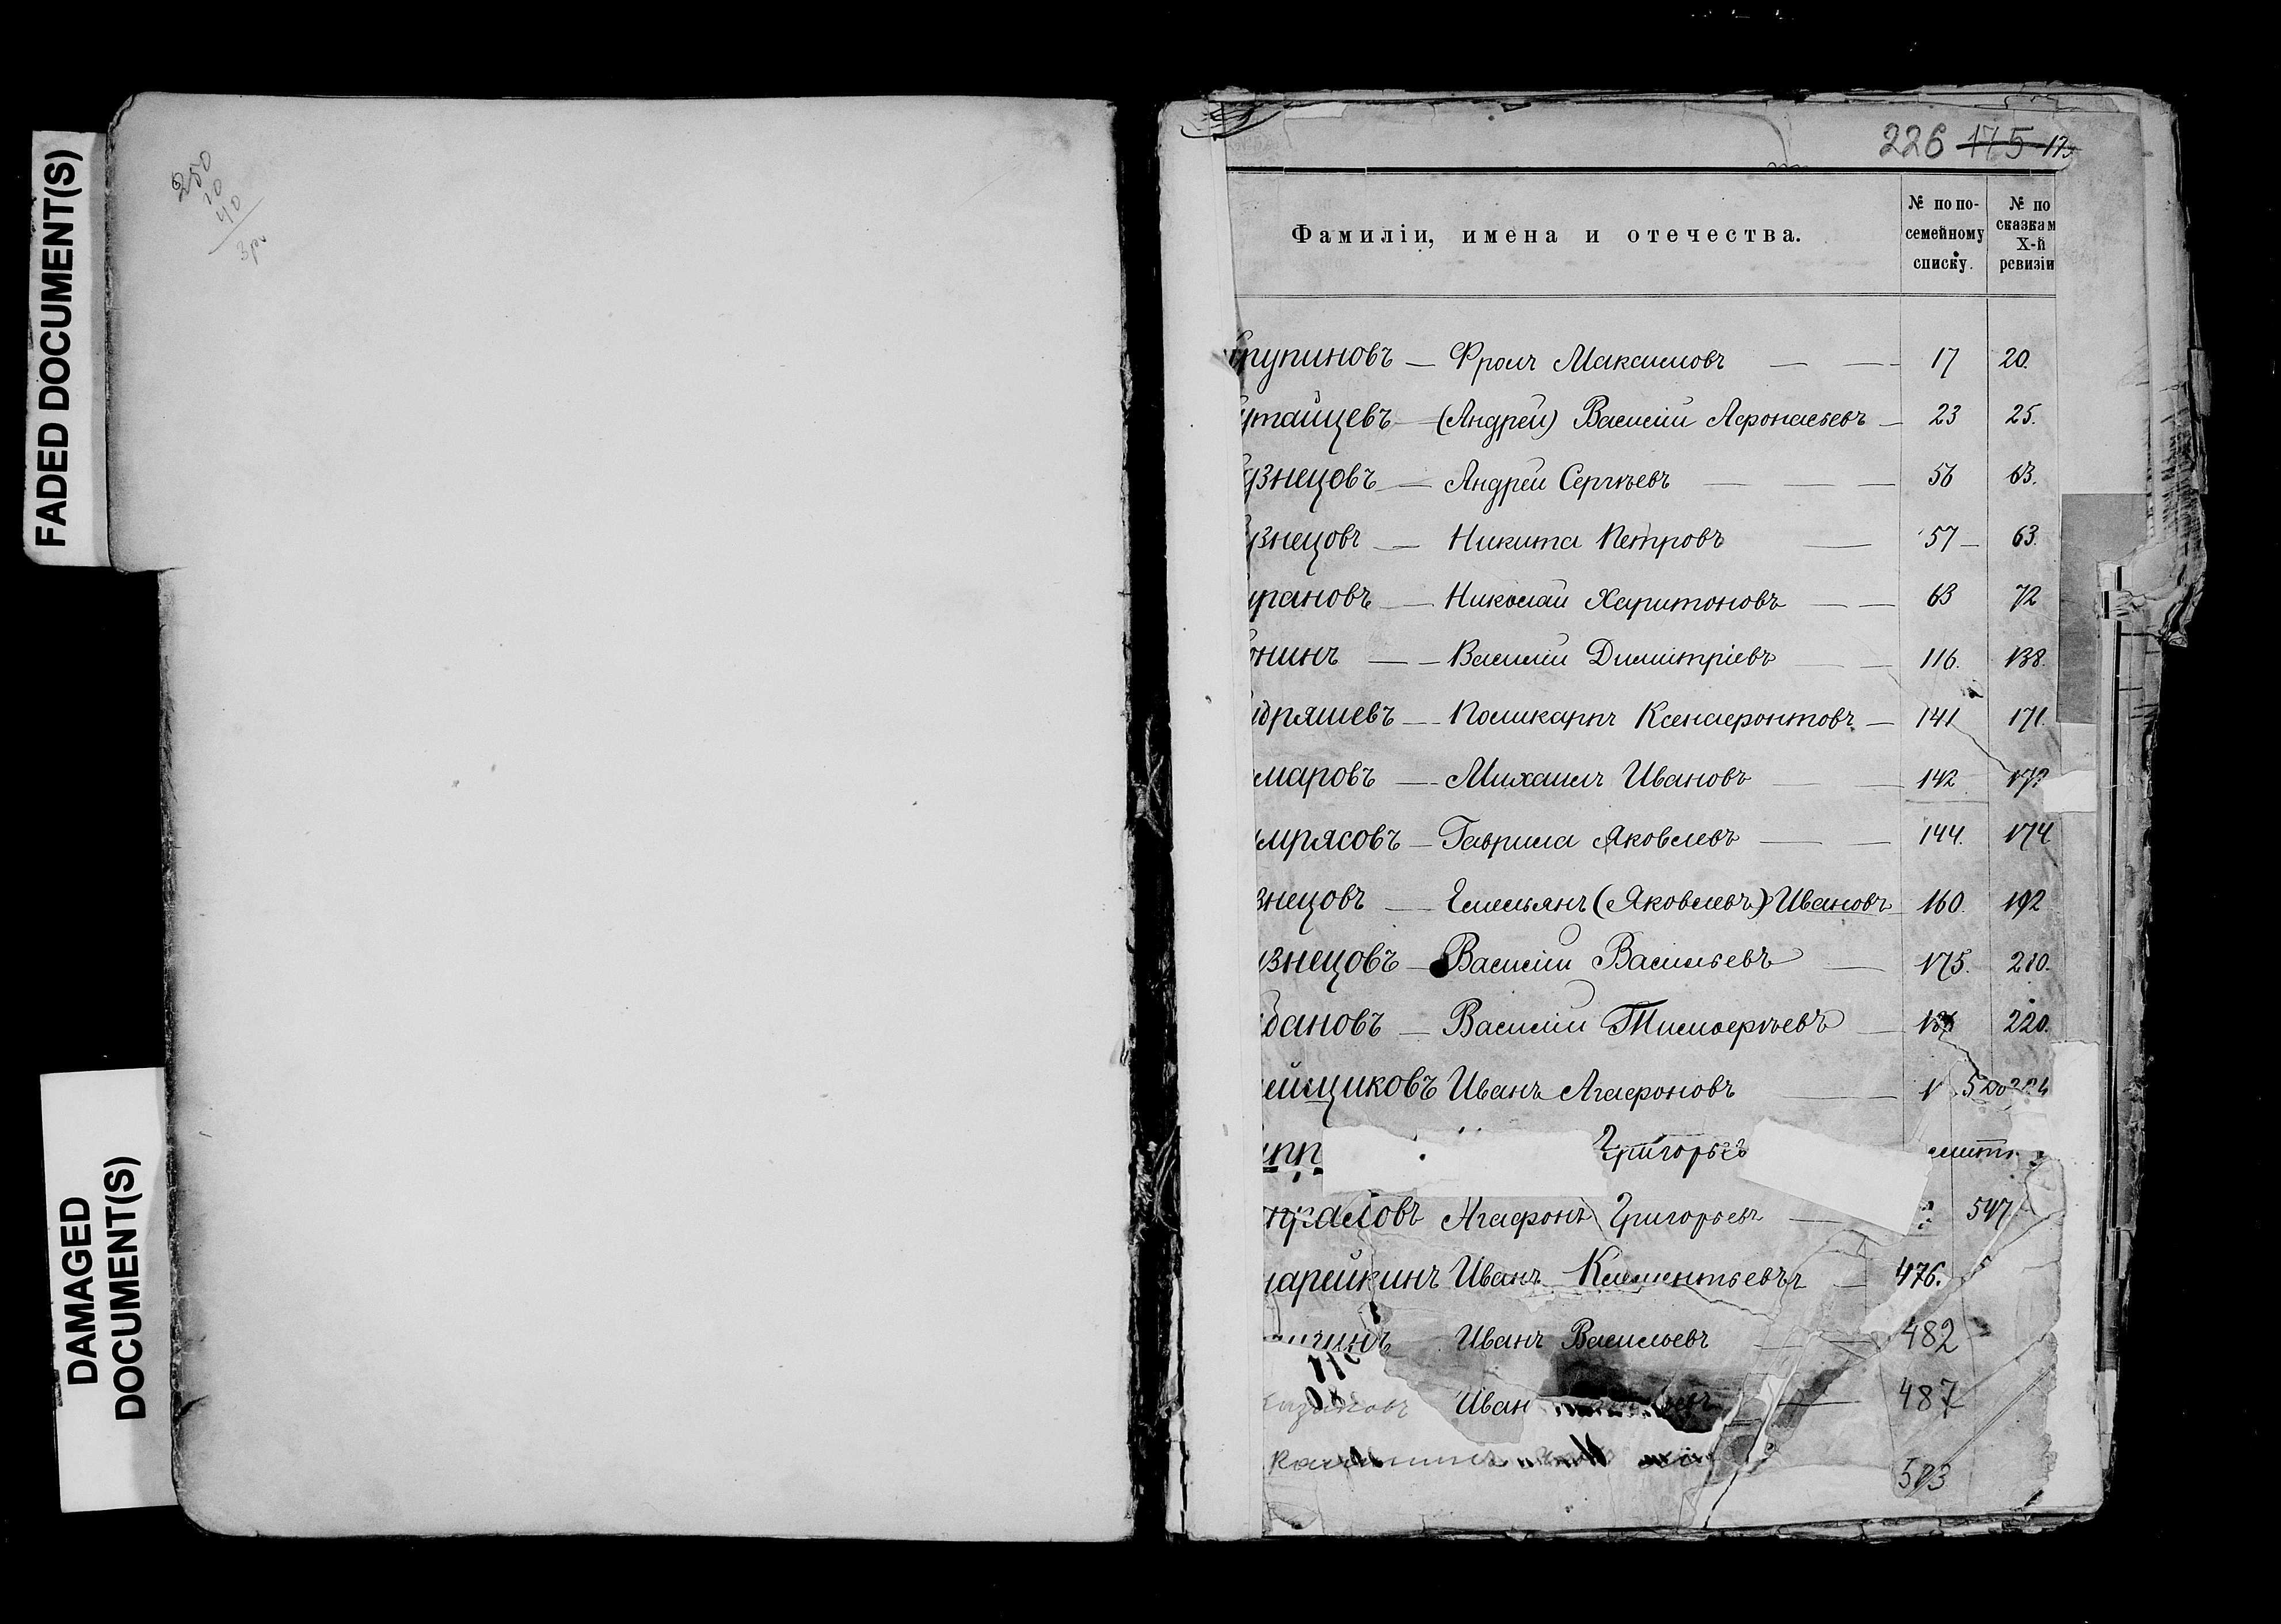 FADED DOCUMENT(S)
DAMAGED
DOCUMENT(S)
250
10
40
226 175
Фамиліи, имена и отечества.
№ по по-
семейному
списку.
№ по
сказкам
X-й
ревизіи
рупиновъ — Фролъ Максимовъ — — 17 20.
утайцевъ — (Андрей) Василій Афонасьевъ — 23 25.
узнецовъ — Андрей Сергѣевъ — — — 56 63.
узнецовъ — Никита Петровъ — 57 — 63.
урановъ — Николай Харитоновъ — — 63 72
онинъ — — Василій Димитріевъ — — 116. 138.
дряшевъ — Поликарпъ Ксенофонтовъ — 141 171.
маровъ — Михаилъ Ивановъ — — 142
мрясовъ — Гаврила Яковлевъ — — 144. 174
знецовъ — Емельянъ (Яковлевъ) Ивановъ 160. 192
знецовъ — Василій Васильевъ — 175. 210.
дановъ — Василій Тимофеевъ — 220.
ейщиковъ Иванъ Агафоновъ —
Григорьевъ
Агафонъ Григорьевъ — 547
арейкинъ Иванъ Климентьевъ — 476.
Иванъ Васильевъ — 482
Иван — 487
503